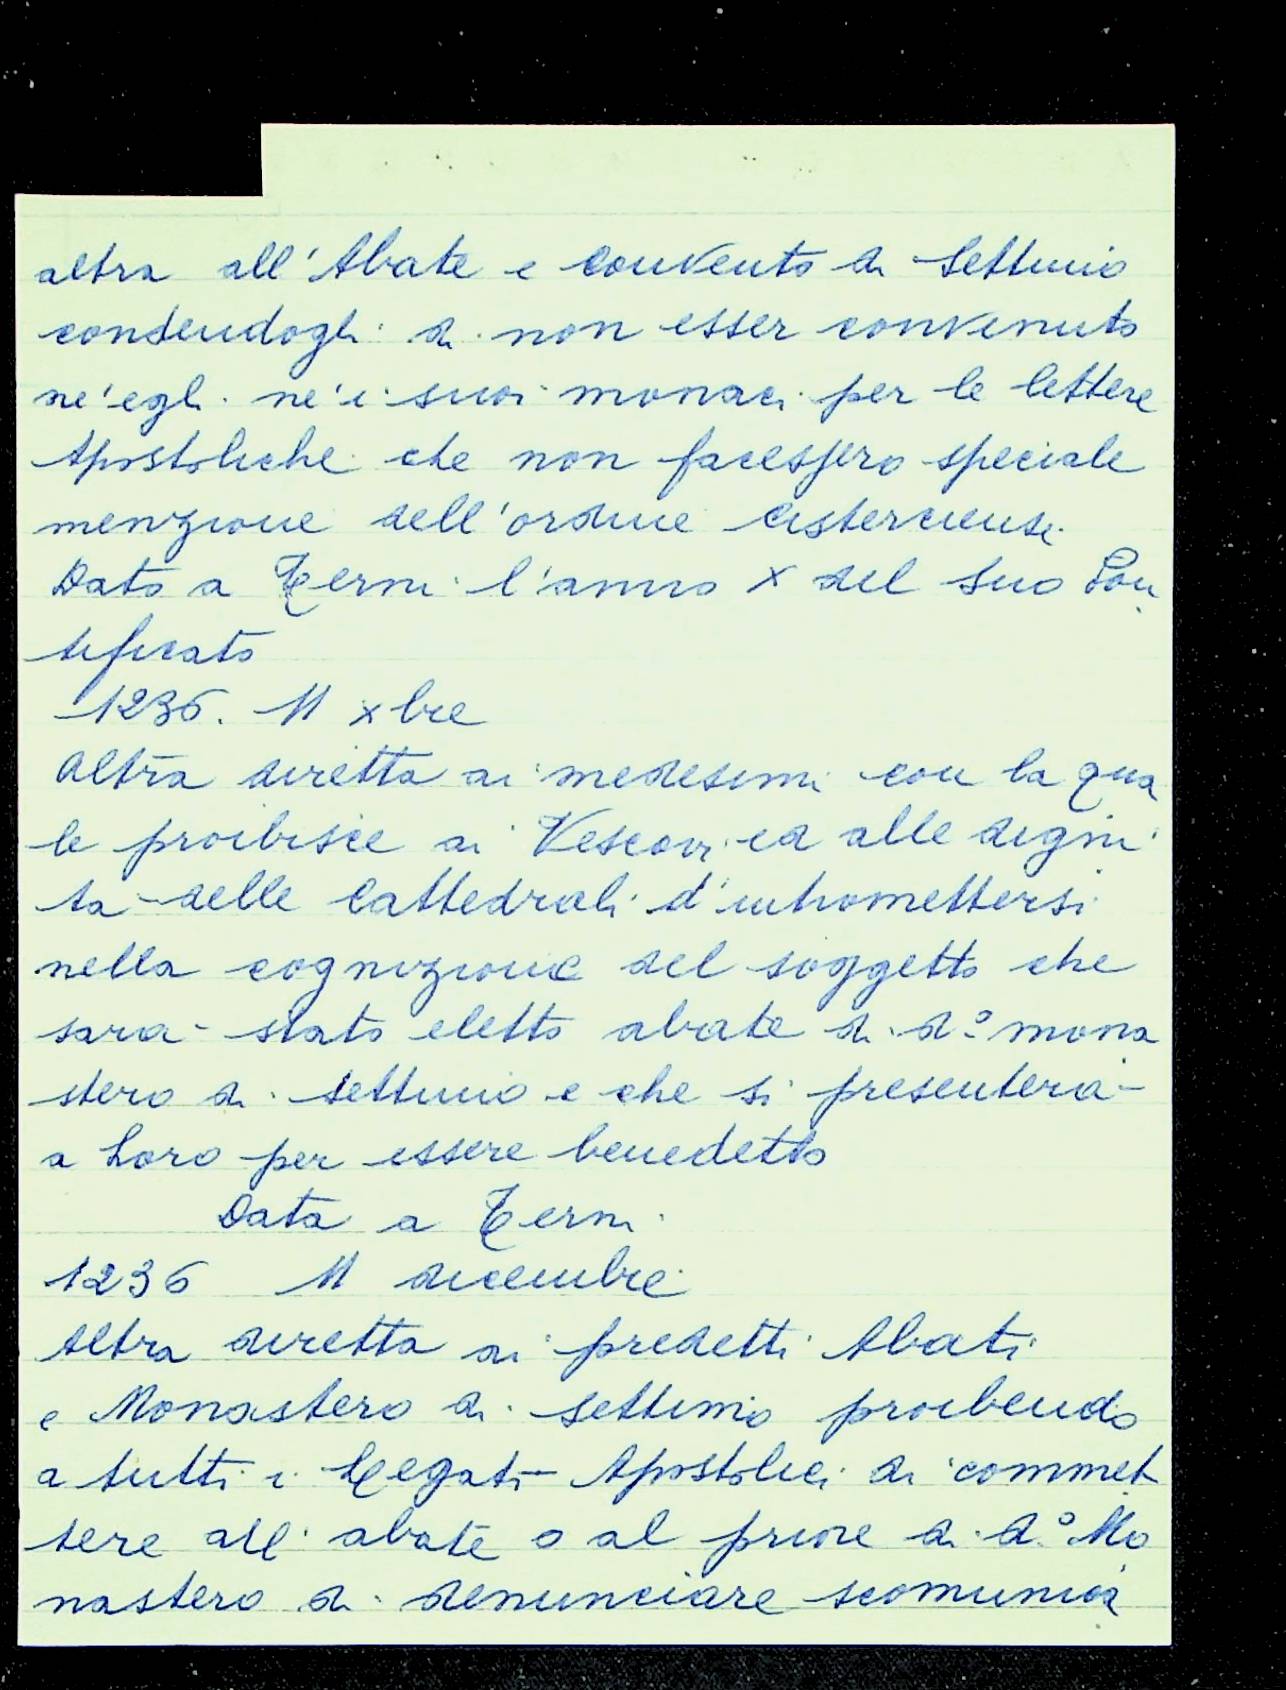 altra all'Abate e Convento di Settimo
condendogli di non esser convenuto
ne' egli ne' i suoi monaci per le lettere
Apostoliche che non facessero speciale
menzione dell'ordine Cistercense.
Dato a Terni l'anno X del suo Pon
tificato
1236. 11 xbre
Altra diretta ai medesimi con la qua
le proibisce ai Vescovi ed alle digni
tà delle Cattedrali d'intromettersi
nella cognizione del soggetto che
sarà stato eletto abate di do mona
stero di Settimo e che si presenterà
a Loro per essere benedetto
Data a Terni
1236 11 dicembre
Altra diretta ai predetti Abati
e Monastero di Settimo proibendo
a tutti i Legati Apostolici di commet
tere all'abate o al priore di do Mo
nastero di denunciare scomunica